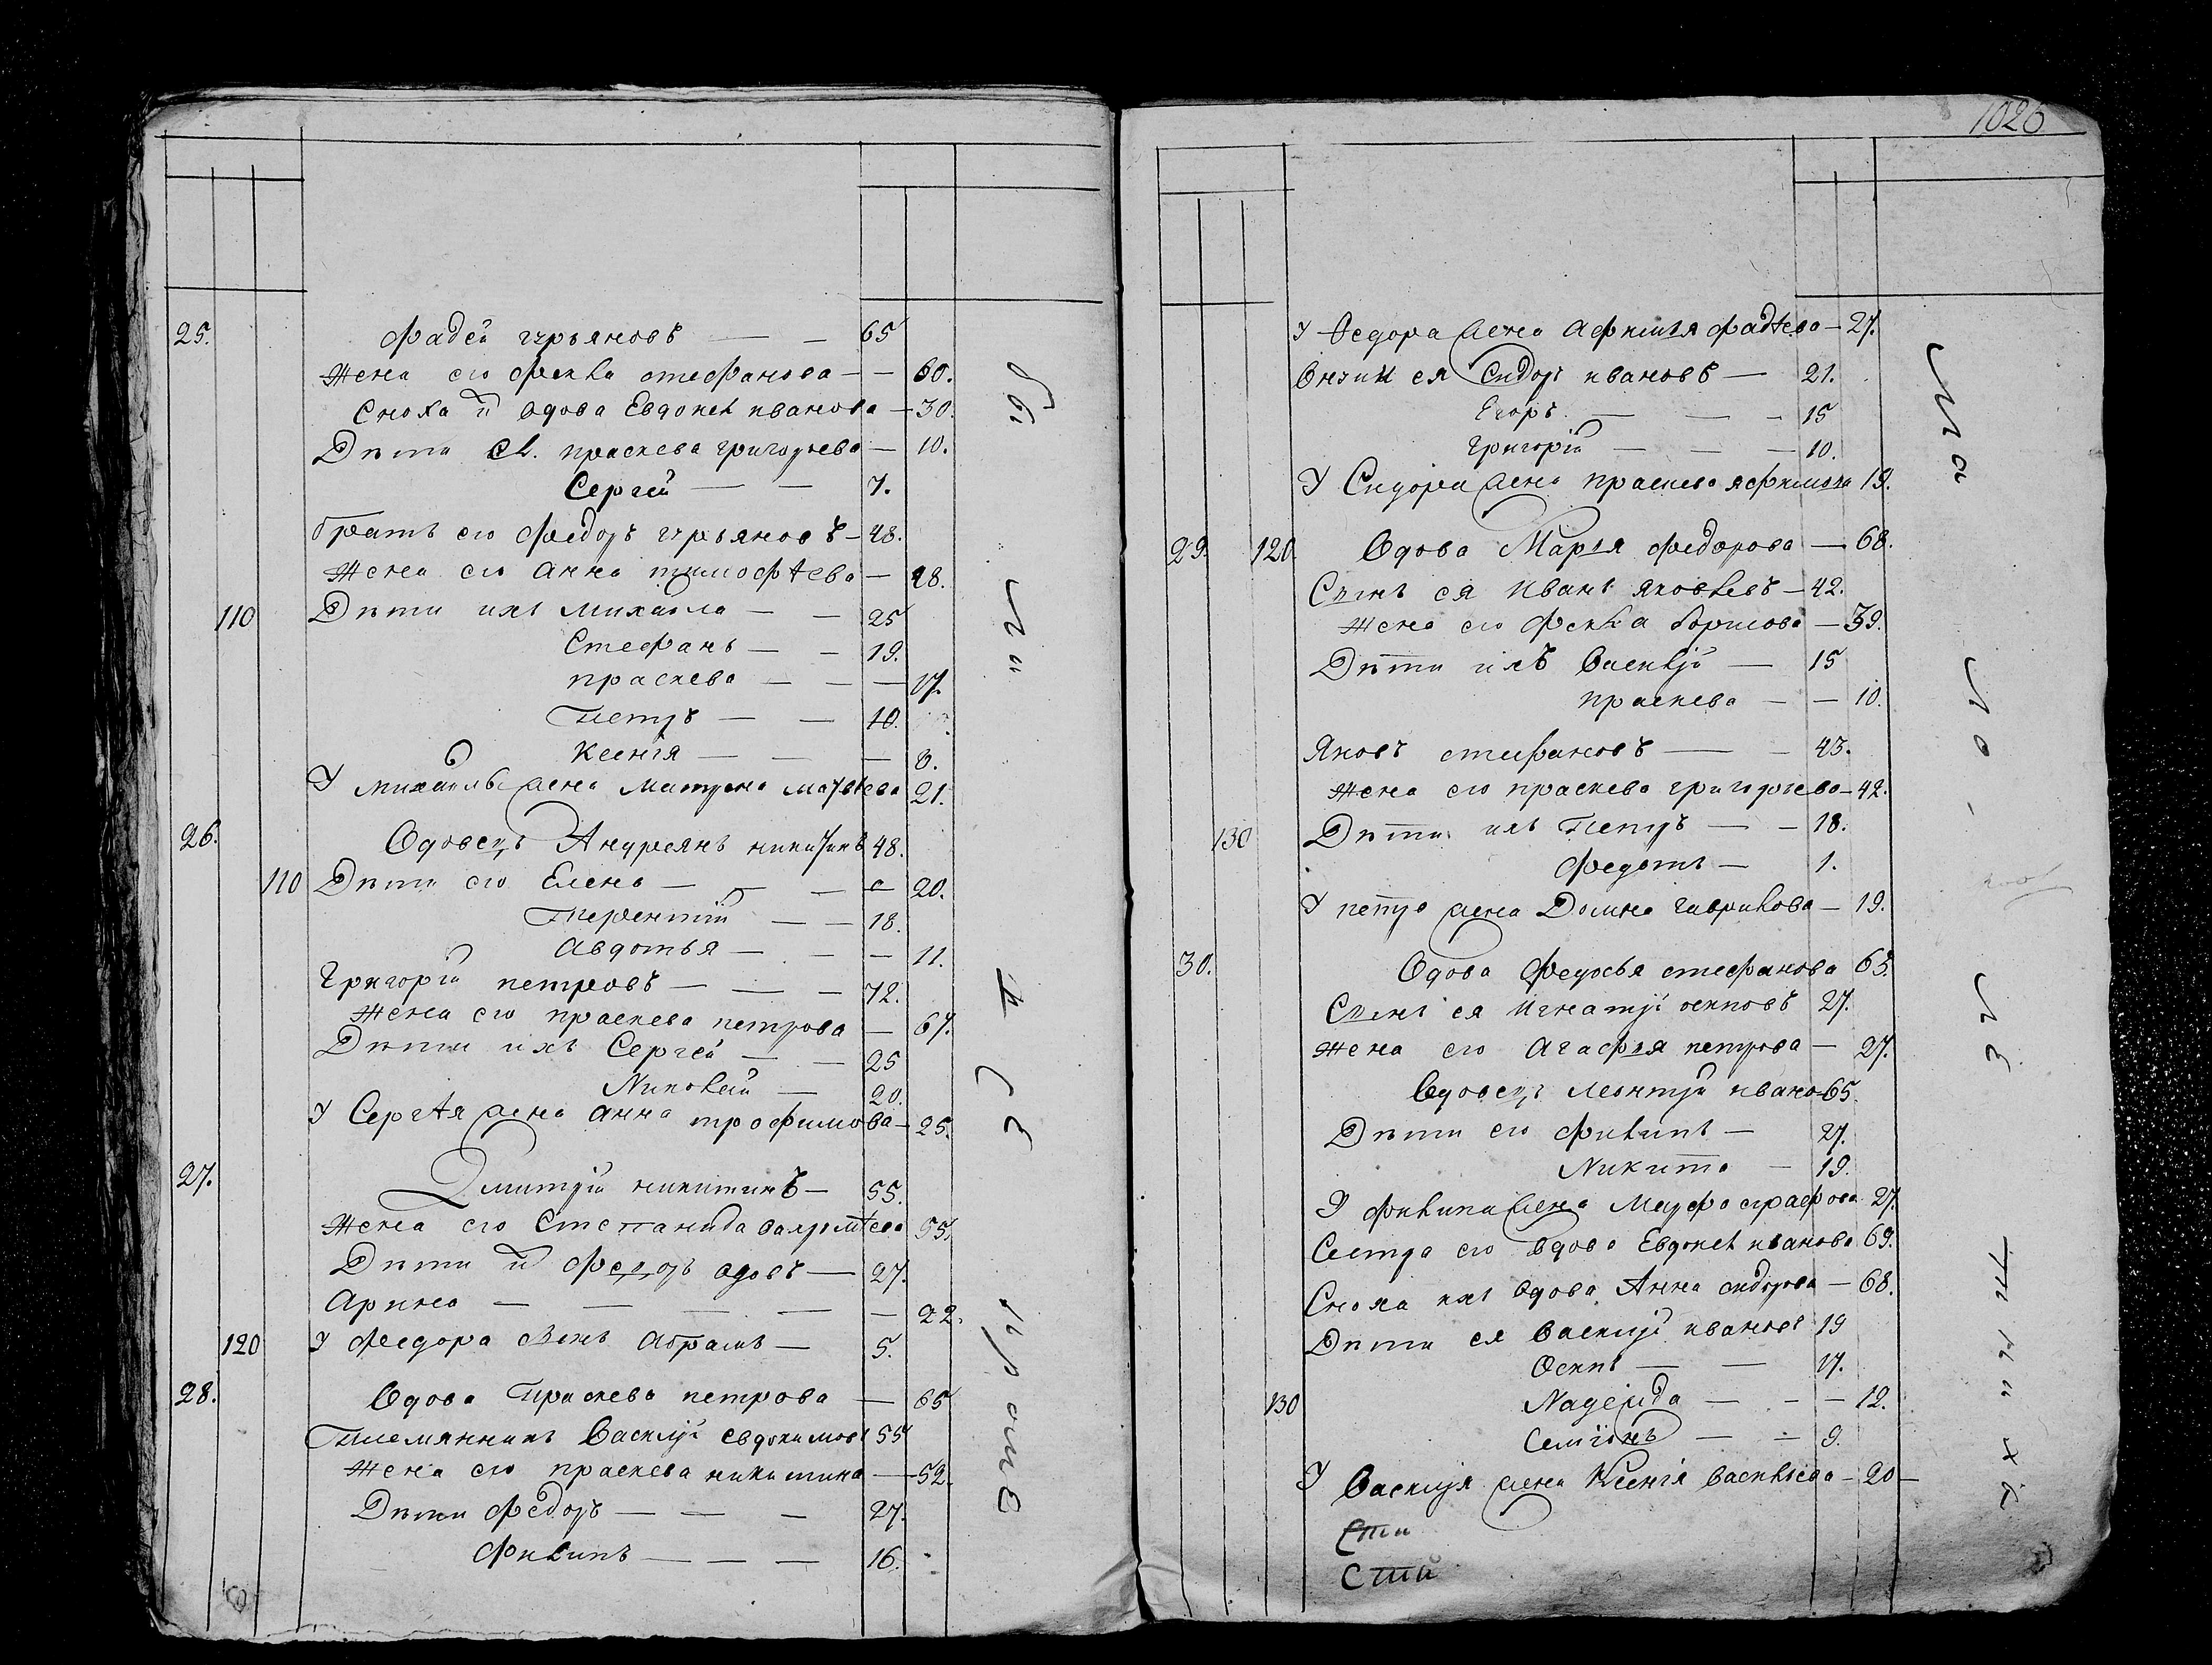 25. Фадей гурьяновъ — — 65
Жена его Фекла стефанова — — 60.
Сноха вдова Евдокея иванова — 30.
Дѣти ея. праскева григорьева — 10.
Сергей — — 7.
братъ его Федоръ гурьяновъ — 48.
Жена его Анна тимофѣева — 48.
110 Дѣти ихъ Михайла — — 25
Стефанъ — — 19.
праскева — — — 17.
Петръ — — 10.
Ксенiя — — — 8.
У михайлы жена Матрена матвѣева 21.
26. Вдовецъ Андреянъ никитинъ 48.
110 Дѣти его Елена — — — 20.
Терентiй — — 18.
Авдотья — — — 11.
Григорiй петровъ — — — 72.
Жена его праскева петрова — 67.
Дѣти ихъ Сергей — — 25
Николай — 20.
У Сергѣя жена Анна трофимова — 25.
27. Дмитрiй никитинъ — 55.
Жена его Степанида 55.
Дѣти Федоръ вдовъ — 27.
Арина — — — — — 22.
120 У Федора сынъ Абрамъ — 5.
28. Вдова Праскева петрова — 65
Племянникъ Василiй Евдокимовъ 55
Жена его праскева никитина — 52.
Дѣти Федоръ — — — 27.
Филипъ — — — 16.
1026
У Федора жена Афимья фадѣева — 27.
ея Сидоръ ивановъ — 21.
Егоръ — — — 15
Григорiй — — — 10.
У Сидора жена праскева 19.
29. 120 Вдова Марья федорова — 68.
Сынъ ея Иванъ яковлевъ — 42.
Жена его Фекла борисова — 39.
Дѣти ихъ Василiй — 15
праскева — — 10.
Яковъ стефановъ — — 43.
Жена его праскева григорьева — 42.
130 Дѣти ихъ Петръ — — 18.
Федотъ — 1.
У петра жена Домна гаврилова — 19.
30. Вдова Федосья стефанова 63.
Сынъ ея Игнатiй осиповъ 27.
Жена его Агафья петрова — 27.
Вдовецъ Леонтiй ивано 65.
Дѣти его Филипъ — 27.
Никита — 19.
У филипа жена Марфа 27.
Сестра его вдова Евдокея иванова 69.
Сноха ихъ вдова Анна сидорова — 68.
Дѣти ея Василiй ивановъ 19
Осипъ — — 17.
130 Надежда — — — 12.
Семiонъ — — 9.
У Василiя жена Ксенiя васильева — 20 —